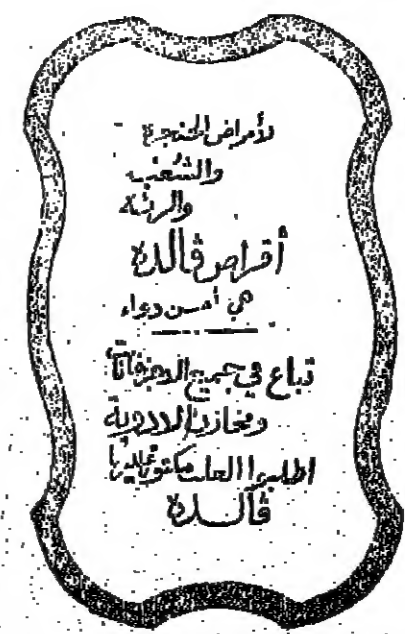 لأمراض الحنجرة
والشعب
والرئة
أقراص ڤالدة
هي أحسن دواء
تباع في جميع الاجزخانات
ومخازن الادوية
اطلبوا العلب مكتوبا عليها
ڤالدة